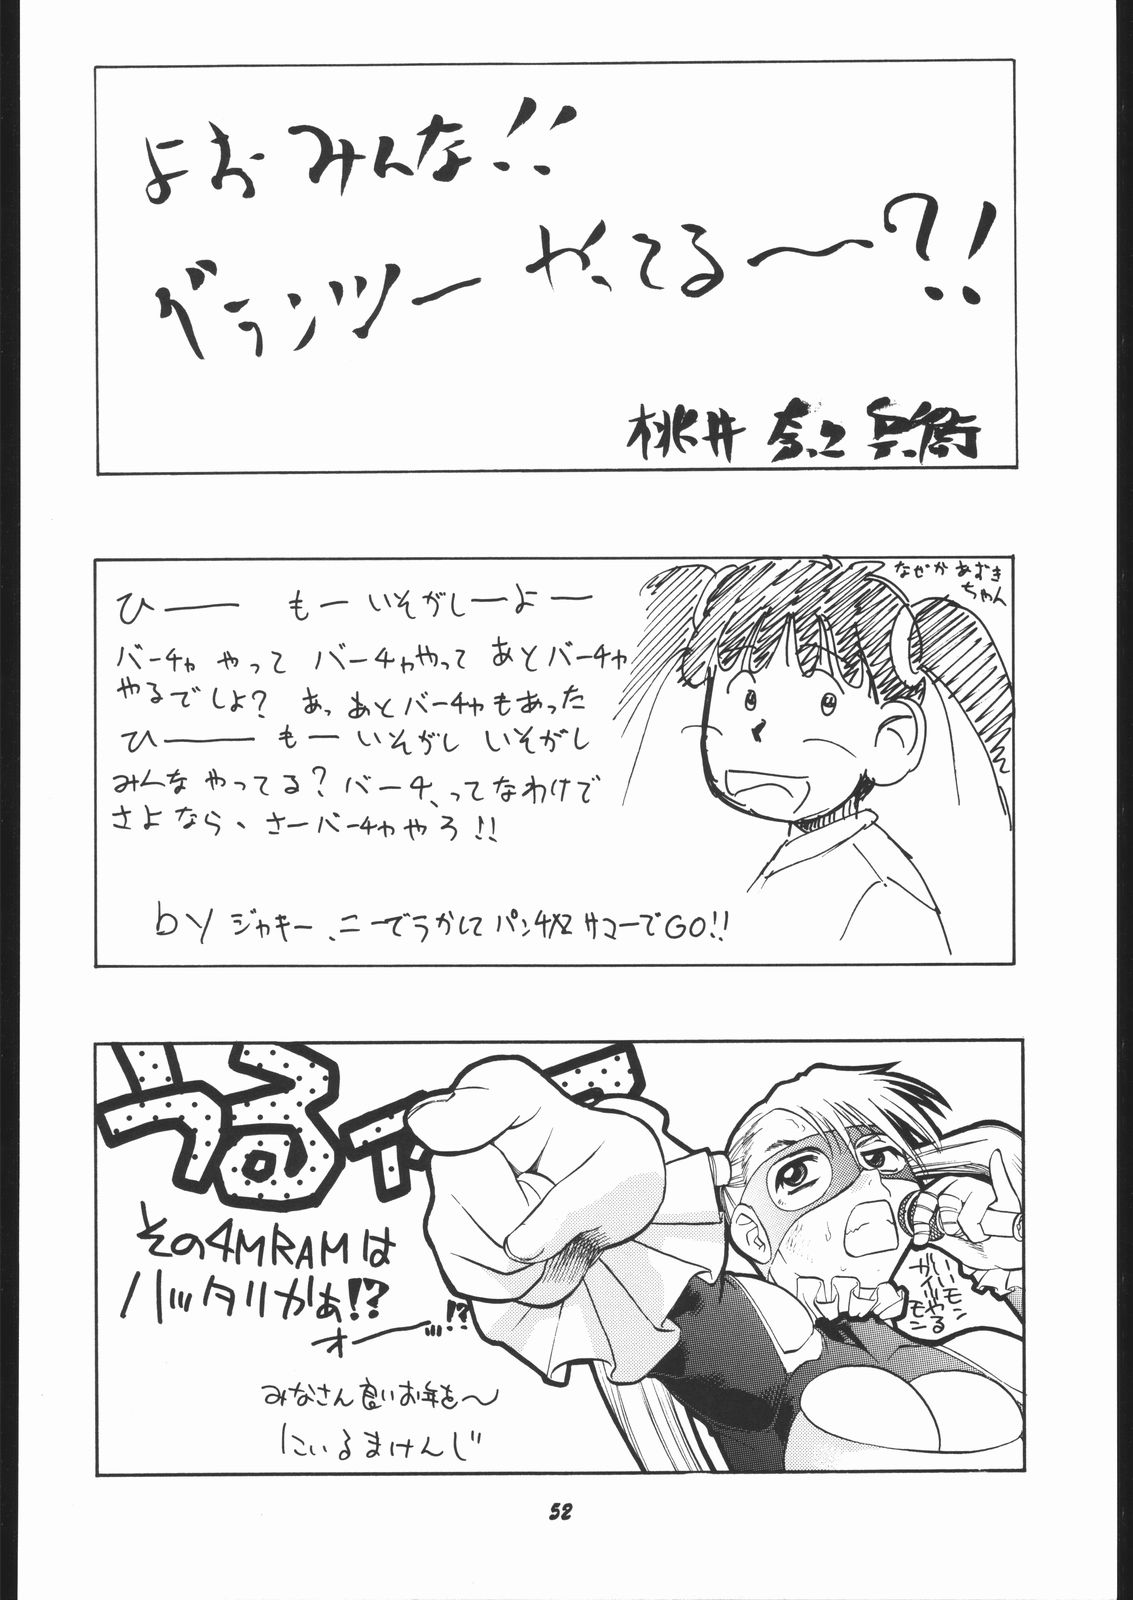 よお みんな!!
グランツー やってる〜?!
桃井 奈之 兵衛
なぜか あずき
ちゃん
ひー もー いそがしーよー
バーチャ やって バーチャやって あとバーチャ
やるでしょ? あっ あと バーチャもあった
ひー もー いそがし いそがし
みんな やってる? バーチ、ってなわけで
さよなら、さーバーチャやろ!!
by ジャキー、ニーでうかして パンチx2 サマーでGO!!
その4MRAMは
ハッタリかぁ!?
オー…!?
いいモン
ガイッやる
モン
みなさん 良いお年を〜
にいるまけんじ
52